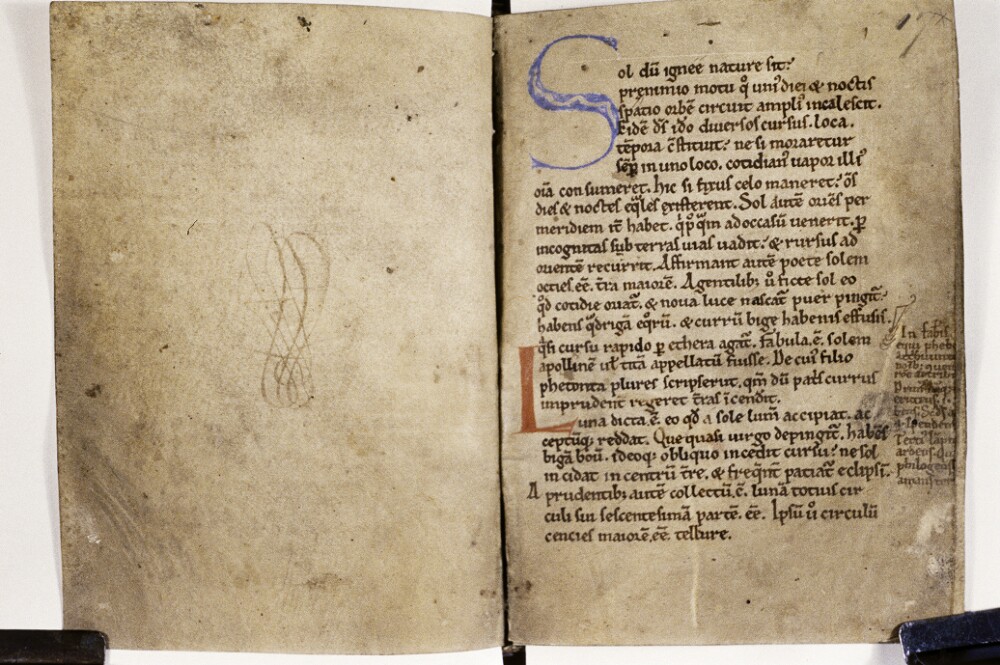 Sol dū ignee nature sit?
premmio motu q̊ uni⁹ diei & noctis
spatio orbē circuit ampli⁹ incalescit.
Eidē dr̄ ido diuersos cursus. loca.
tēpora c̄stituit? ne si moraretur
sēp in uno loco. cotidian⁹ uapor illi⁹
oīa consumeret. hic si fixus celo maneret? ōs
dies & noctes eq̄les existerent. Sol autē oriēs per
meridiem it̄ habet. qui postq̄m ad occasū uenerit. ꝑ
incognitas sub terras uias uadit? & rursus ad
orientē recurrit. Affirmant autē poete solem
octies .ēē. tr̄a maiorē. A gentilib; ů ficte sol eo
qd̄ cotidie oriat̄. & noua luce nascat̄ puer pingit̄?
habens q̄drigā eq̊rū. & currū bige habenis effusis.
q̄si cursu rapido ꝑ ethera agat̄. fabula .ē. solem
apollinē ul̄ titā appellatū fuisse. De cui⁹ filio
phetonta plures scripserūt. qm̄ dū pat̄s currus
imprudent̄ regeret tr̄as īcendit.
Luna dicta .ē. eo qd̄ a sole lum̄ accipiat. ac
ceptūq; reddat. Que quasi uirgo depingit̄. habēs
bigā boū. ideoq; obliquo incedit cursu? ne sol
incidat in centrū tr̄e. & freq̄nt̄ patiat̄ eclipsī.
A prudentib; autē collectū .ē. lunā totius cir
culi sui sescentesimā partē .ēē. Ipsū ů circulū
cencies maiorē .ēē. tellure.
In fabl̄is
equi phebi